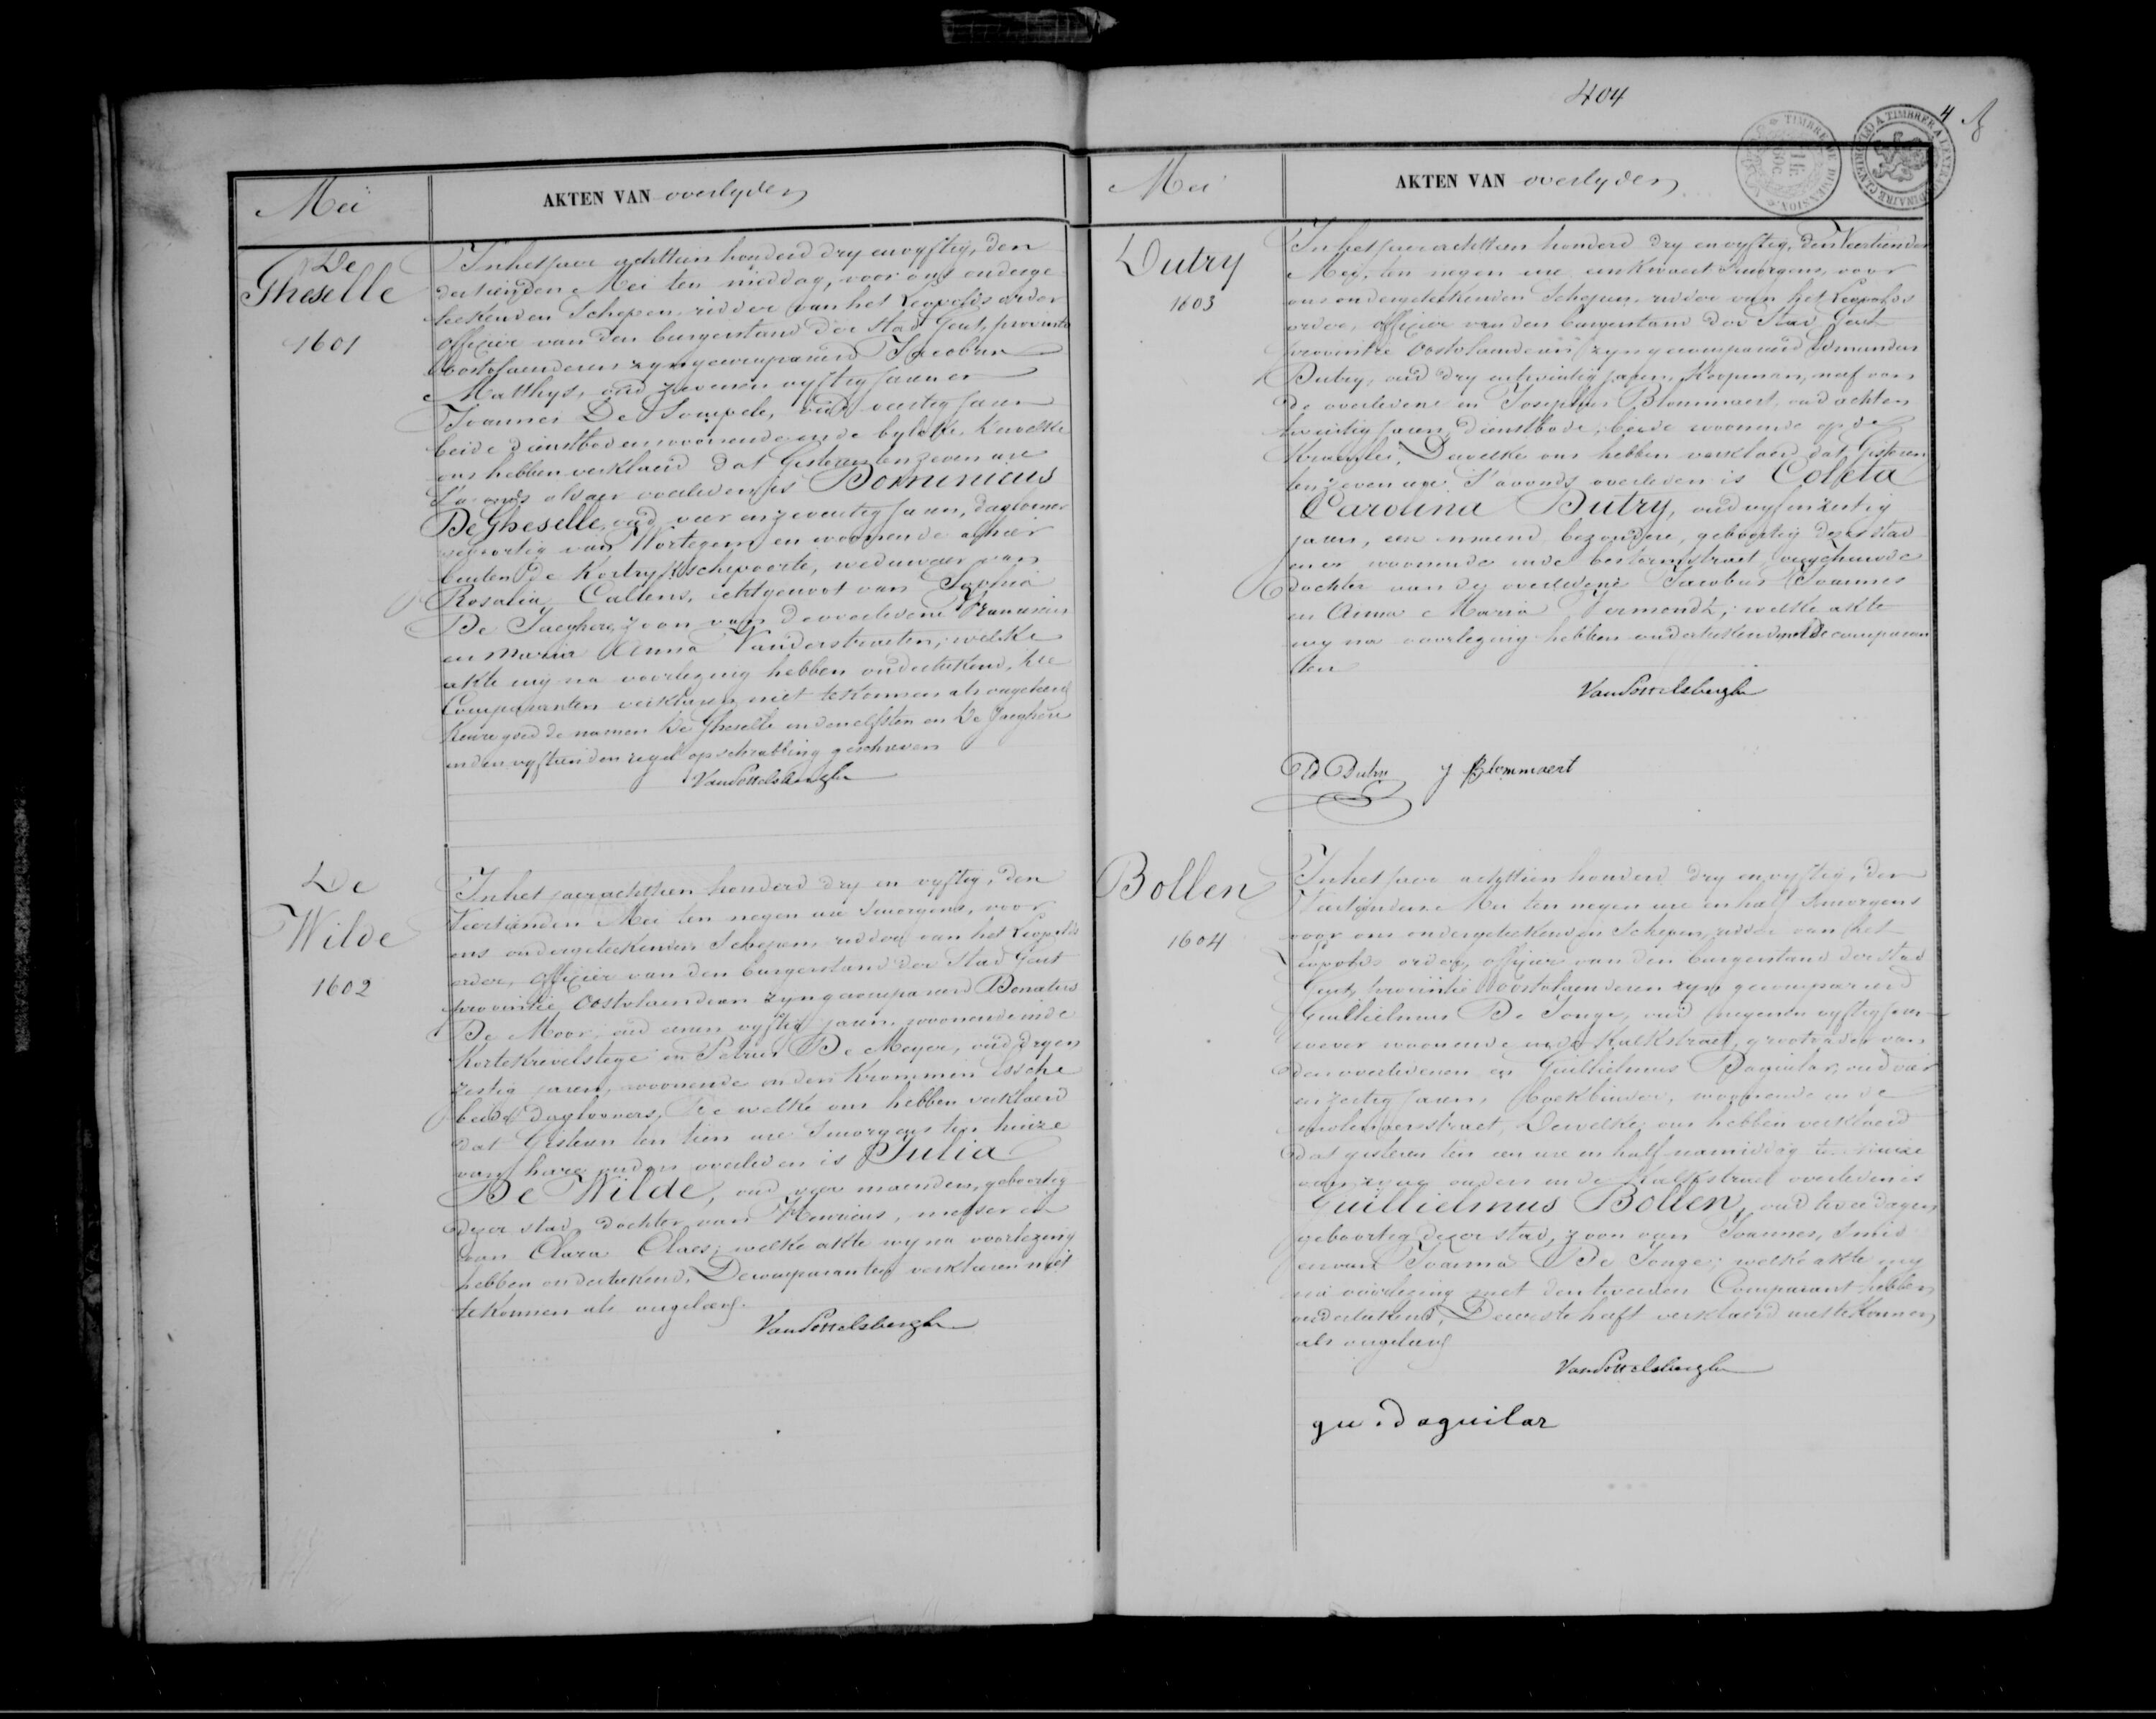 404
4
Mei
AKTEN VAN overlyden
De
Gheselle
1601
In het jaer achttien honderd dry en vyftig, den
dertienden Mei ten middag, voor ons onderge
teekenden Schepen, ridder van het Leopolds order
officier van den burgerstand der Stad Gent, provintie
Oostvlaenderen zyn gecompareerd Jacobus
Matthys, oud zeven en vyftig jaren en
Joannes De Sompele, oud veertig jaren
beide dienstboden woonende in de byloke, Dewelke
ons hebben verklaerd dat Gisteren ten zeven ure
S'avonds aldaer overleden is Dominicus
De Gheselle, oud vier en zeventig jaren, daglooner
geboortig van Wortegem en woonende alhier
buiten de Kortryksche poorte, weduwaer van
Rosalia Callens, echtgenoot van Sophia
De Jaeghere, zoon van de overledene Franciscus
en Maria Anna Vanderstraeten; welke
akte wy na voorlezing hebben onderteekend, De
Comparanten verklaren niet te konnen als ongeleerd
Keure goed de namen De Gheselle in den elfsten en De Jaeghere
in den vyftienden regel op schrabbing geschreven
VanPottelsberghe
De
Wilde
1602
In het jaer achttien honderd dry en vyftig, den
Veertienden Mei ten negen ure Smorgens, voor
ons ondergeteekenden Schepen, ridder van het Leopolds
order, officier van den burgerstand der Stad Gent
provintie Oostvlaenderen zyn gecompareerd Donatus
De Moor, oud een en vyftig jaren, woonende in de
Korte Krevelstege en Petrus De Meyer, oud dry en
zestig jaren, woonende in den Krommen Essche
beide dagloners, De welke ons hebben verklaerd
dat Gisteren ten tien ure Smorgens ten huize
van hare ouders overleden is Julia
De Wilde, oud vier maenden, geboortig
dezer stad, dochter van Henricus, metser en
van Clara Claes; welke akte wy na voorlezing
hebben onderteekend, De comparanten verklaren niet
te konnen als ongeleerd.
VanPottelsberghe
Mei
AKTEN VAN overlyden
TIMBRE DE DIMENSION
Dutry
1603
In het jaer achttien honderd dry en vyftig, den Veertienden
Mey, ten negen ure een kwaert Smorgens, voor
ons ondergeteekenden Schepen, ridder van het Leopolds
order, officier van den burgerstand der Stad Gent
provintie Oostvlaenderen zyn gecompareerd Edmundus
Dutry, oud dry en twintig jaren, Koopman, neef van
de overledene en Josephus Blommaert, oud acht en
twintig jaren, dienstbode, beide woonende op de
Kraenlei, Dewelke ons hebben verklaerd dat Gisteren
ten zeven ure S'avonds overleden is Coleta
Carolina Dutry, oud vyf en zestig
jaren, een maend, bezondere, geboortig dezer stad
en er woonende in de bestormstraet, ongehuwde
dochter van de overledene Jacobus Joannes
en Anna Maria; welke akte
wy na voorlezing hebben onderteekend met de comparan
ten
VanPottelsberghe
Ed Dutry J Blommaert
Bollen
1604
In het jaer achttien honderd dry en vyftig, den
Veertienden Mei ten negen ure en half Smorgens
voor ons ondergeteekenden Schepen, ridder van het
Leopolds order, officier van den burgerstand der stad
Gent, provintie Oostvlaenderen zyn gecompareerd
Guillielmus De Jonge, oud negen en vyftig jaren
wever woonende in de Kalkstraet, grootvader van
den overledenen en Guillielmus Daguilar, oud vier
en zestig jaren, boekbinder, woonende in de
molenaerstraet, Dewelke ons hebben verklaerd
dat gisteren ten een ure en half namiddag ten huize
van zyne ouders in de Kalkstraet overleden is
Guillielmus Bollen, oud twee dagen
geboortig dezer stad, zoon van Joannes, Smid
en van Joanna De Jonge; welke akte wy
na voorlezing met den tweeden Comparant hebben
onderteekend, De eerste heeft verklaerd niet te konnen
als ongeleerd
VanPottelsberghe
gu. daguilar